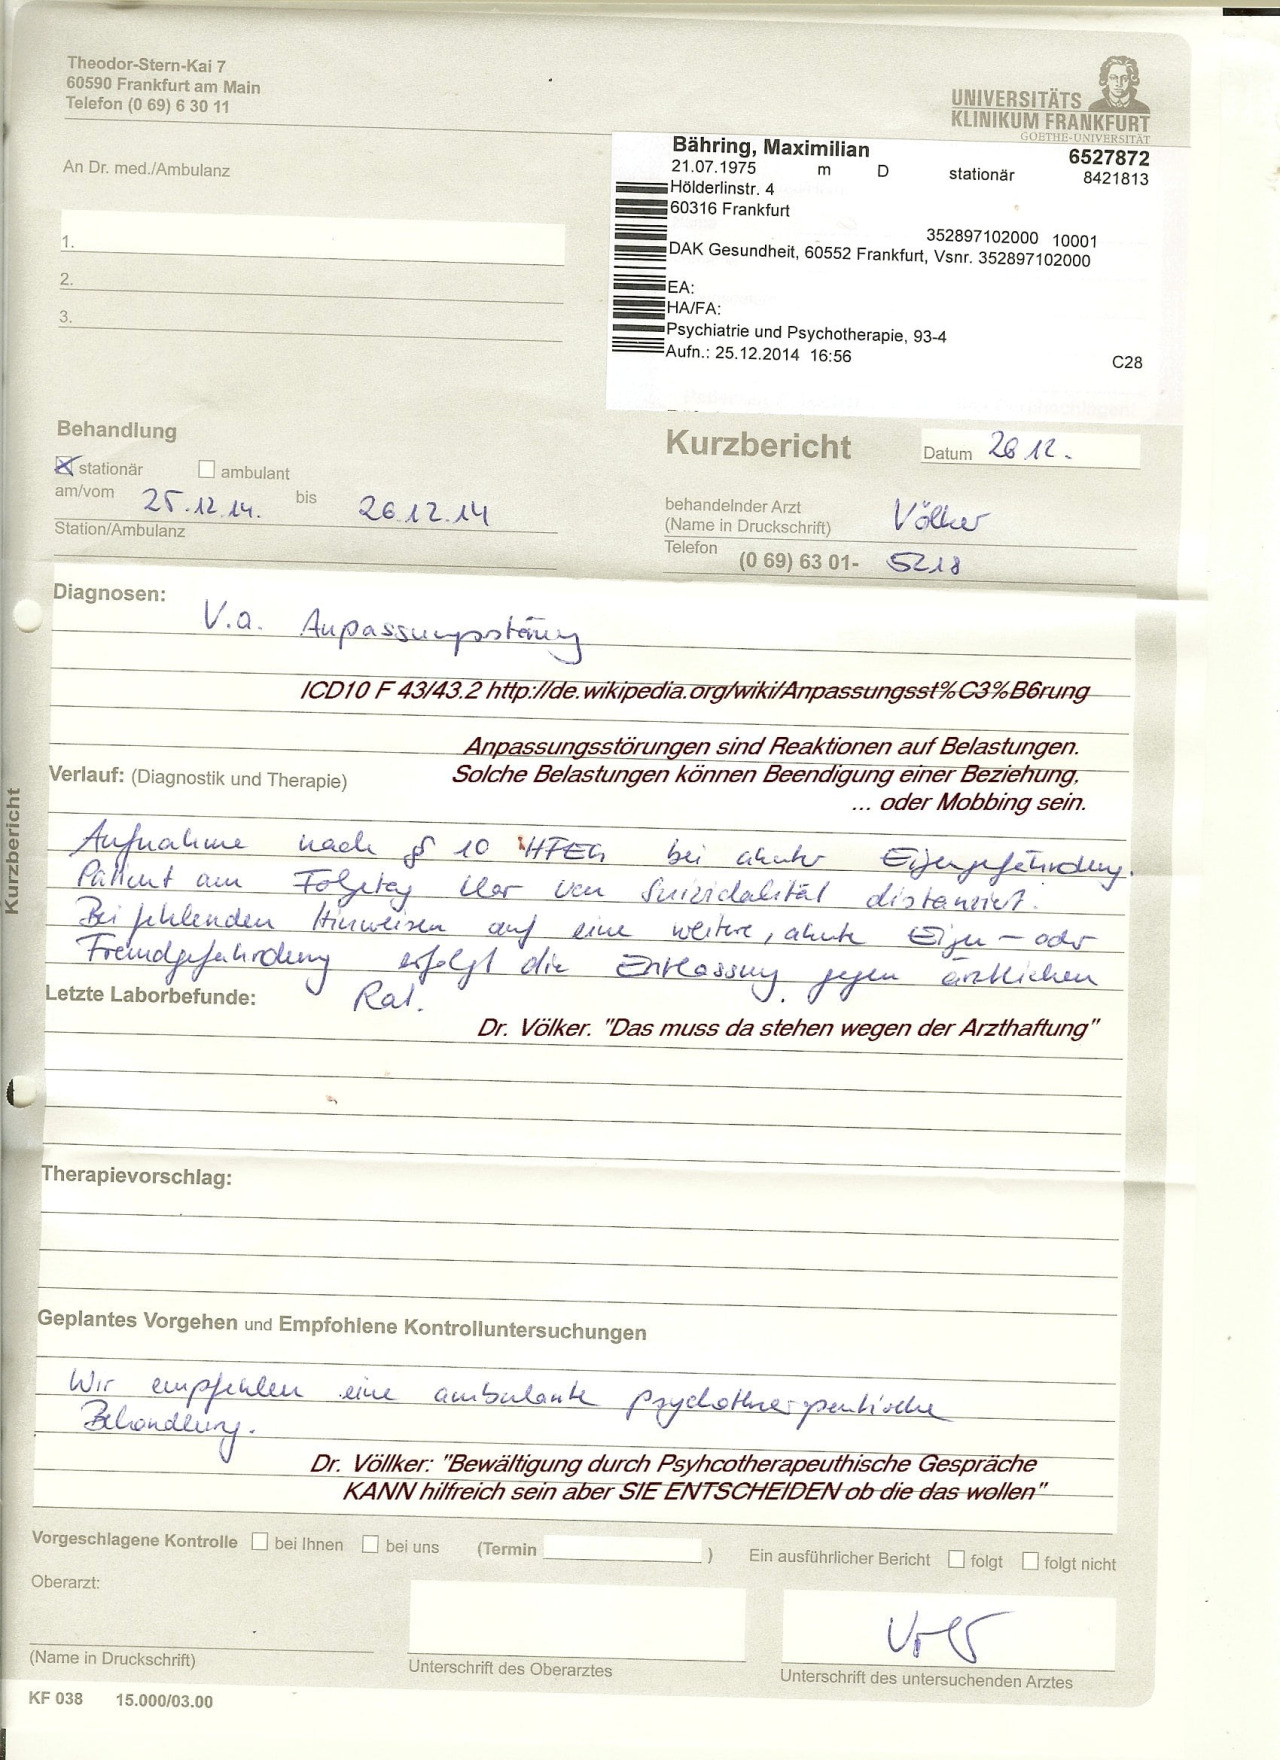 Theodor-Stern-Kai 7
60590 Frankfurt am Main
Telefon (0 69) 6 30 11
UNIVERSITÄTS
KLINIKUM FRANKFURT
GOETHE-UNIVERSITÄT
An Dr. med./Ambulanz
1.
2.
3.
Bähring, Maximilian 6527872
21.07.1975 m D stationär 8421813
Hölderlinstr. 4
60316 Frankfurt
352897102000 10001
DAK Gesundheit, 60552 Frankfurt, Vsnr. 352897102000
EA:
HA/FA:
Psychiatrie und Psychotherapie, 93-4
Aufn.: 25.12.2014 16:56
C28
Behandlung
stationär ambulant
am/vom 25.12.14. bis 26.12.14
Station/Ambulanz
Kurzbericht Datum 26 12.
behandelnder Arzt
(Name in Druckschrift) Völker
Telefon (0 69) 63 01- 5218
Diagnosen: V.a. Anpassungsstörung
ICD10 F 43/43.2 http://de.wikipedia.org/wiki/Anpassungsst%C3%B6rung
Anpassungsstörungen sind Reaktionen auf Belastungen.
Solche Belastungen können Beendigung einer Beziehung,
... oder Mobbing sein.
Verlauf: (Diagnostik und Therapie)
Aufnahme nach § 10 HFEG bei akuter Eigengefährdung.
Patient am Folgetag klar von Suizidalität distanziert.
Bei fehlenden Hinweisen auf eine weitere, akute Eigen- oder
Fremdgefährdung erfolgt die Entlassung gegen ärztlichen
Rat.
Letzte Laborbefunde:
Dr. Völker. "Das muss da stehen wegen der Arzthaftung"
Therapievorschlag:
Geplantes Vorgehen und Empfohlene Kontrolluntersuchungen
Wir empfehlen eine ambulante psychotherapeutische
Behandlung.
Dr. Völlker: "Bewältigung durch Psyhcotherapeuthische Gespräche
KANN hilfreich sein aber SIE ENTSCHEIDEN ob die das wollen"
Vorgeschlagene Kontrolle bei Ihnen bei uns (Termin ) Ein ausführlicher Bericht folgt folgt nicht
Oberarzt:
(Name in Druckschrift)
Unterschrift des Oberarztes
Unterschrift des untersuchenden Arztes
KF 038 15.000/03.00
Kurzbericht